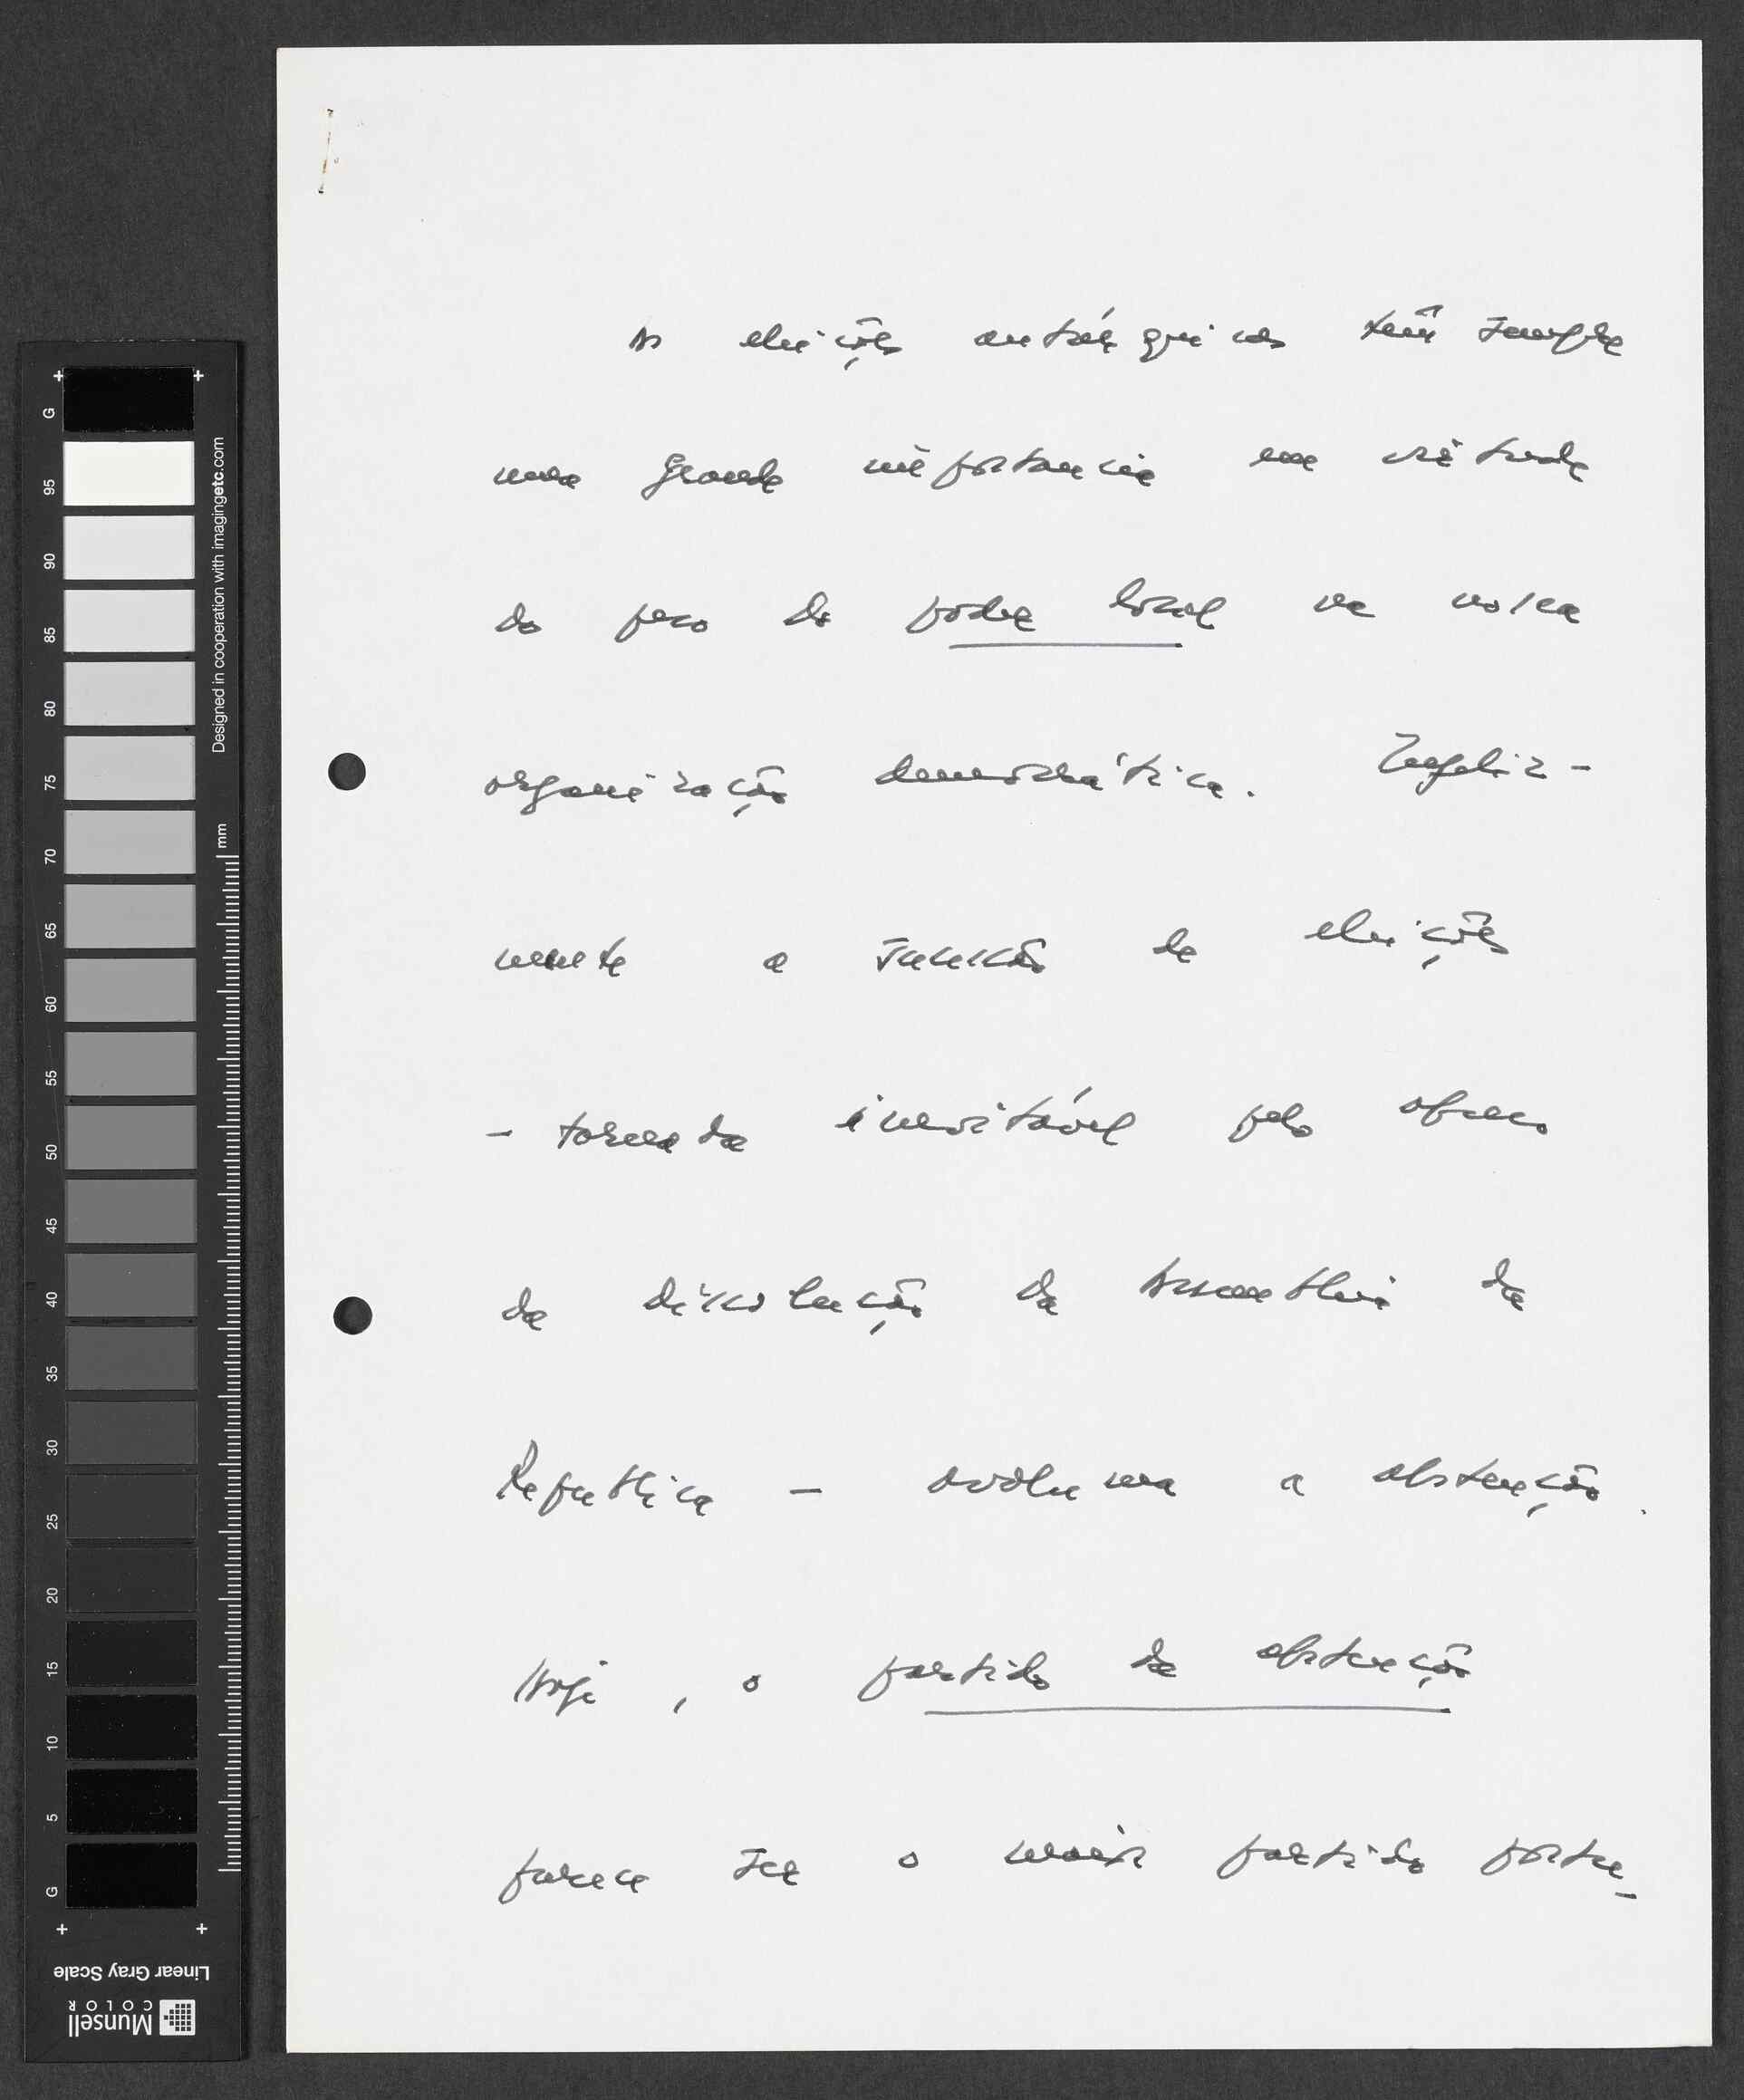 G
95
90
85
80
75
70
65
60
55
50
45
40
35
30
25
20
15
10
5
G
Designed in cooperation with imagingetc.com
mm
Linear Gray Scale
Munsell
COLOR
As eleições autárquicas têm sempre
uma grande importancia em virtude
do peso do poder local na nossa
organização democrática. Infeliz-
mente a sucessão de eleições
- tornada inevitável pelo
da dissolução da Assembleia da
Republica - avoluma a abstenção.
Hoje, o partido da abstenção
parece ser o maior partido portu-